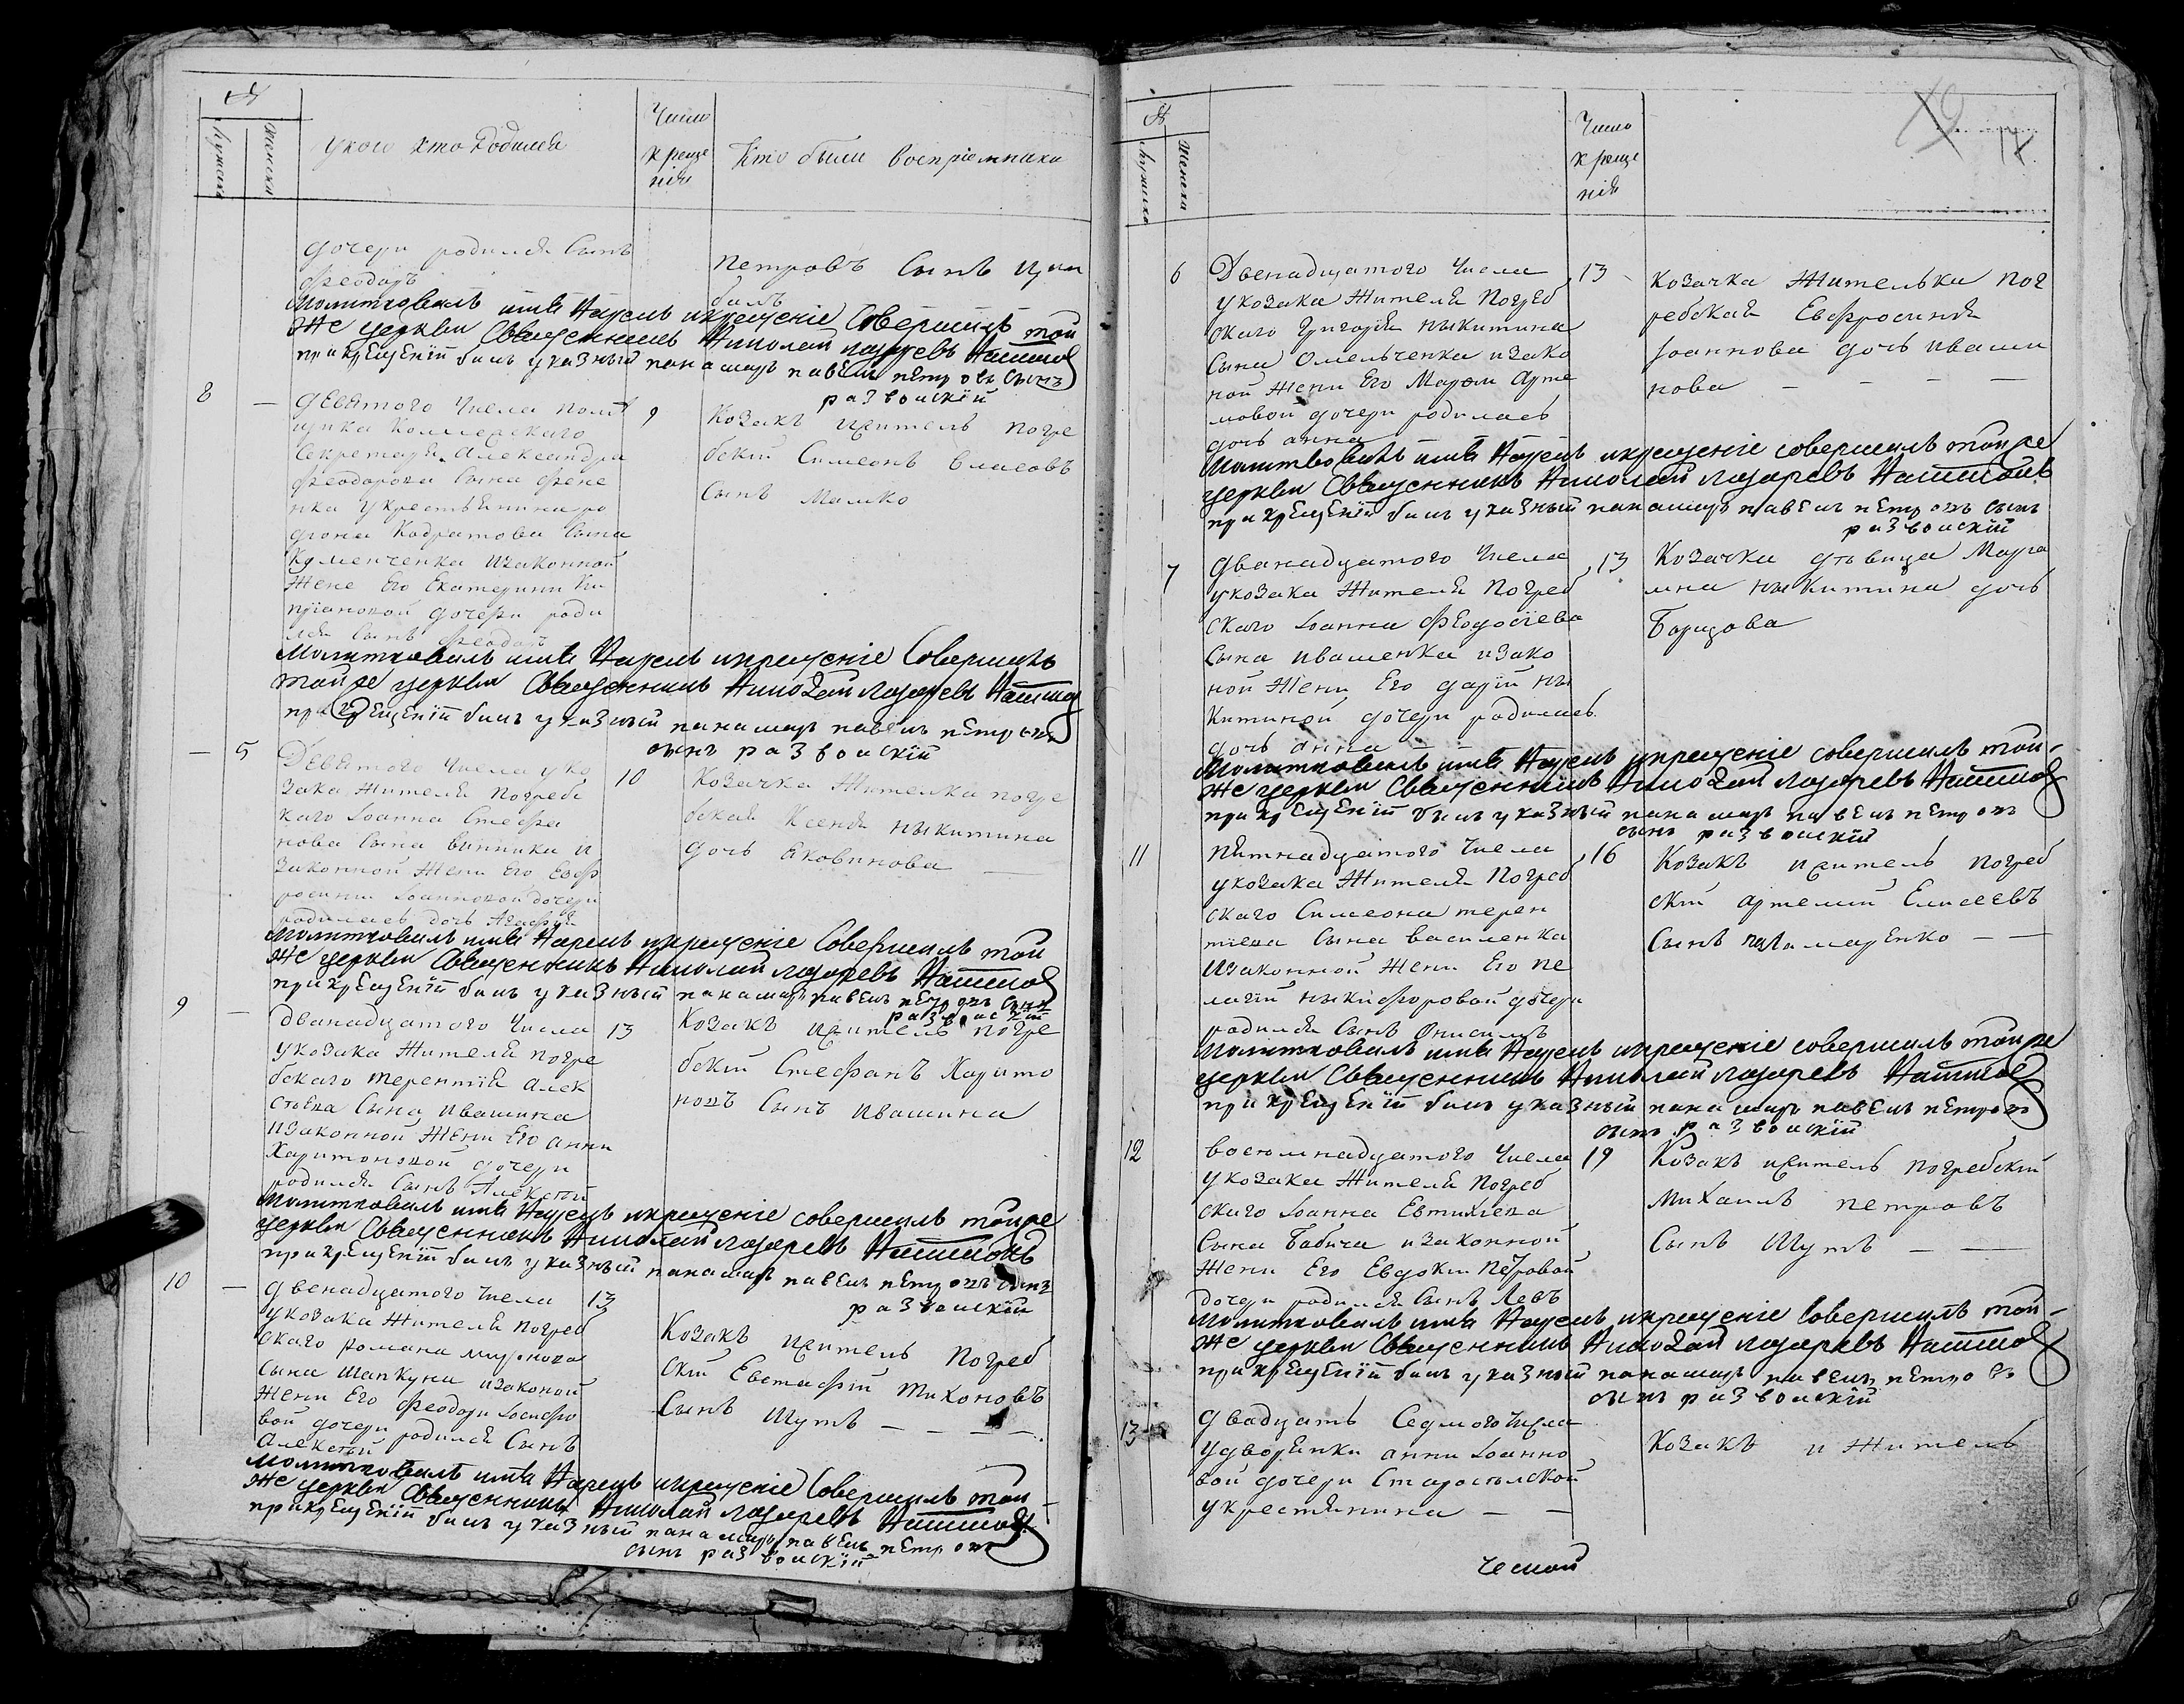 №
Мужеска
Женска
У кого кто родился
Число
креще
нія
Кто были воспріемники
дочери родился Сынъ
Феодоръ
Петровъ Сынъ Цим
балъ
Молитвовалъ имя Нарекъ и крещеніе Совершилъ той
Же церкви Священникъ Николай Лазаревъ
при крещеніи билъ указный панамарь павелъ петровъ сынъ
развоискій
8
—
девятого Числа помѣ
щика Коллежскаго
Секретаря Александра
Феодорова Сына Фене
нка у крестьянина ро
діона Кодратова Сына
Кдменченка и законной
Жене Его Екатерини Ки
пріяновой дочери роди
лся Сынъ Феодоръ
9
Козакъ житель погре
бскій Симеонъ Власовъ
Сынъ Малко
Молитвовалъ имя Нарекъ и крещеніе Совершилъ
той же церкви Священникъ Николай Лазаревъ
при крещеніи билъ указный панамарь павелъ петровъ
сынъ развоискій
—
5
Девятого Числа у ко
зака Жителя Погребс
каго Іоанна Стефа
нова Сына винника и
законной Жени Его Евф
росини Іоанновой дочери
родилась дочь Агафія
10
Козачка Жителка погре
бская Ксенія ныкитина
дочь Яковинова —
Молитвовалъ имя Нарекъ и крещеніе Совершилъ той
Же церкви Священникъ Николай Лазаревъ
при крещеніи билъ указный панамарь павелъ петровъ сынъ
развоискій
9
—
дванадцатого Числа
у козака Жителя погре
бскаго терентія алек
сѣева Сына Ивашина
и законной Жени Его анни
Харитоновой дочери
родился Сынъ Алексѣй
13
Козакъ житель погре
бскій Стефанъ Харито
новъ Сынъ Ивашина
Молитвовалъ имя Нарекъ и крещеніе совершилъ той же
церкви Священникъ Николай Лазаревъ
при крещеніи билъ указный панамарь павелъ петровъ сынъ
развоискій
10
—
двенадцатого Числа
у козака Жителя погреб
скаго романа миронова
сына Шапкуна и законой
Жени Его Феодори Іосифо
вой дочери родился Сынъ
Алексѣй
13
Козакъ житель Погреб
скій Евстафій Тихоновъ
Сынъ Шутъ — — — —
Молитвовалъ имя Нарекъ и крещеніе Совершилъ той
же церкви Священникъ Николай Лазаревъ
при крещеніи билъ указный панамарь павелъ петровъ
сынъ развоискій
№
Мужеска
Женска
Число
креще
нія
17
6
Двенадцатого Числа
у козака Жителя Погреб
скаго Григорія ныкитина
Сына Омельченка и зако
ной Жени Его Марфи Арте
мовой дочери родилась
дочь анна
13
Козачка Жителька Пог
ребская Евфросинія
Іоаннова дочь ивани
нова — — — —
Молитвовалъ имя Нарекъ и крещеніе совершилъ той же
церкви Священникъ Николай Лазаревъ
при крещеніи билъ указный панамарь павелъ петровъ сынъ
развоискій
7
дванадцатого Числа
у козака Жителя Погреб
скаго Іоанна Феодосіева
Сына Ивашенка и зако
ной Жени Его даріи ны
китиной дочери родилась
дочь анна —
13
Козачка дѣвица Мари
мна ныкитина дочь
Борцова
Молитвовалъ имя Нарекъ и крещеніе совершилъ той-
же церкви Священникъ Николай Лазаревъ
при крещеніи билъ указный панамарь павелъ петровъ
сынъ развоискій
11
Пятнадцатого Числа
у козака Жителя Погреб
скаго Симеона терен
тіева Сына василенка
И законной Жени Его пе
лагіи ныкифоровой дочери
родился Сынъ Онисимъ
16
Козакъ житель погреб
скій артемій Елисеевъ
Сынъ паламаренко — —
Молитвовалъ имя Нарекъ и крещеніе совершилъ той же
церкви Священникъ Николай Лазаревъ
при крещеніи билъ указный панамарь павелъ петровъ
сынъ развоискій
12
восемнадцатого Числа
у козака Жителя Погреб
скаго Іоанна Евтихіева
Сына Бабича и законной
Жени Его Евдокіи Петровой
дочери родился Сынъ Левъ
19
Козакъ житель погребскій
Михаилъ петровъ
Сынъ Шутъ — —
Молитвовалъ имя Нарекъ и крещеніе Совершилъ той-
же церкви Священникъ Николай Лазаревъ
при крещеніи билъ указный панамарь павелъ петровъ
сынъ развоискій
13
двадцать Седмого Числа
у дворянки анни Іоанно
вой дочери Старосѣлской
у крестянина — —
Козакъ и Житель